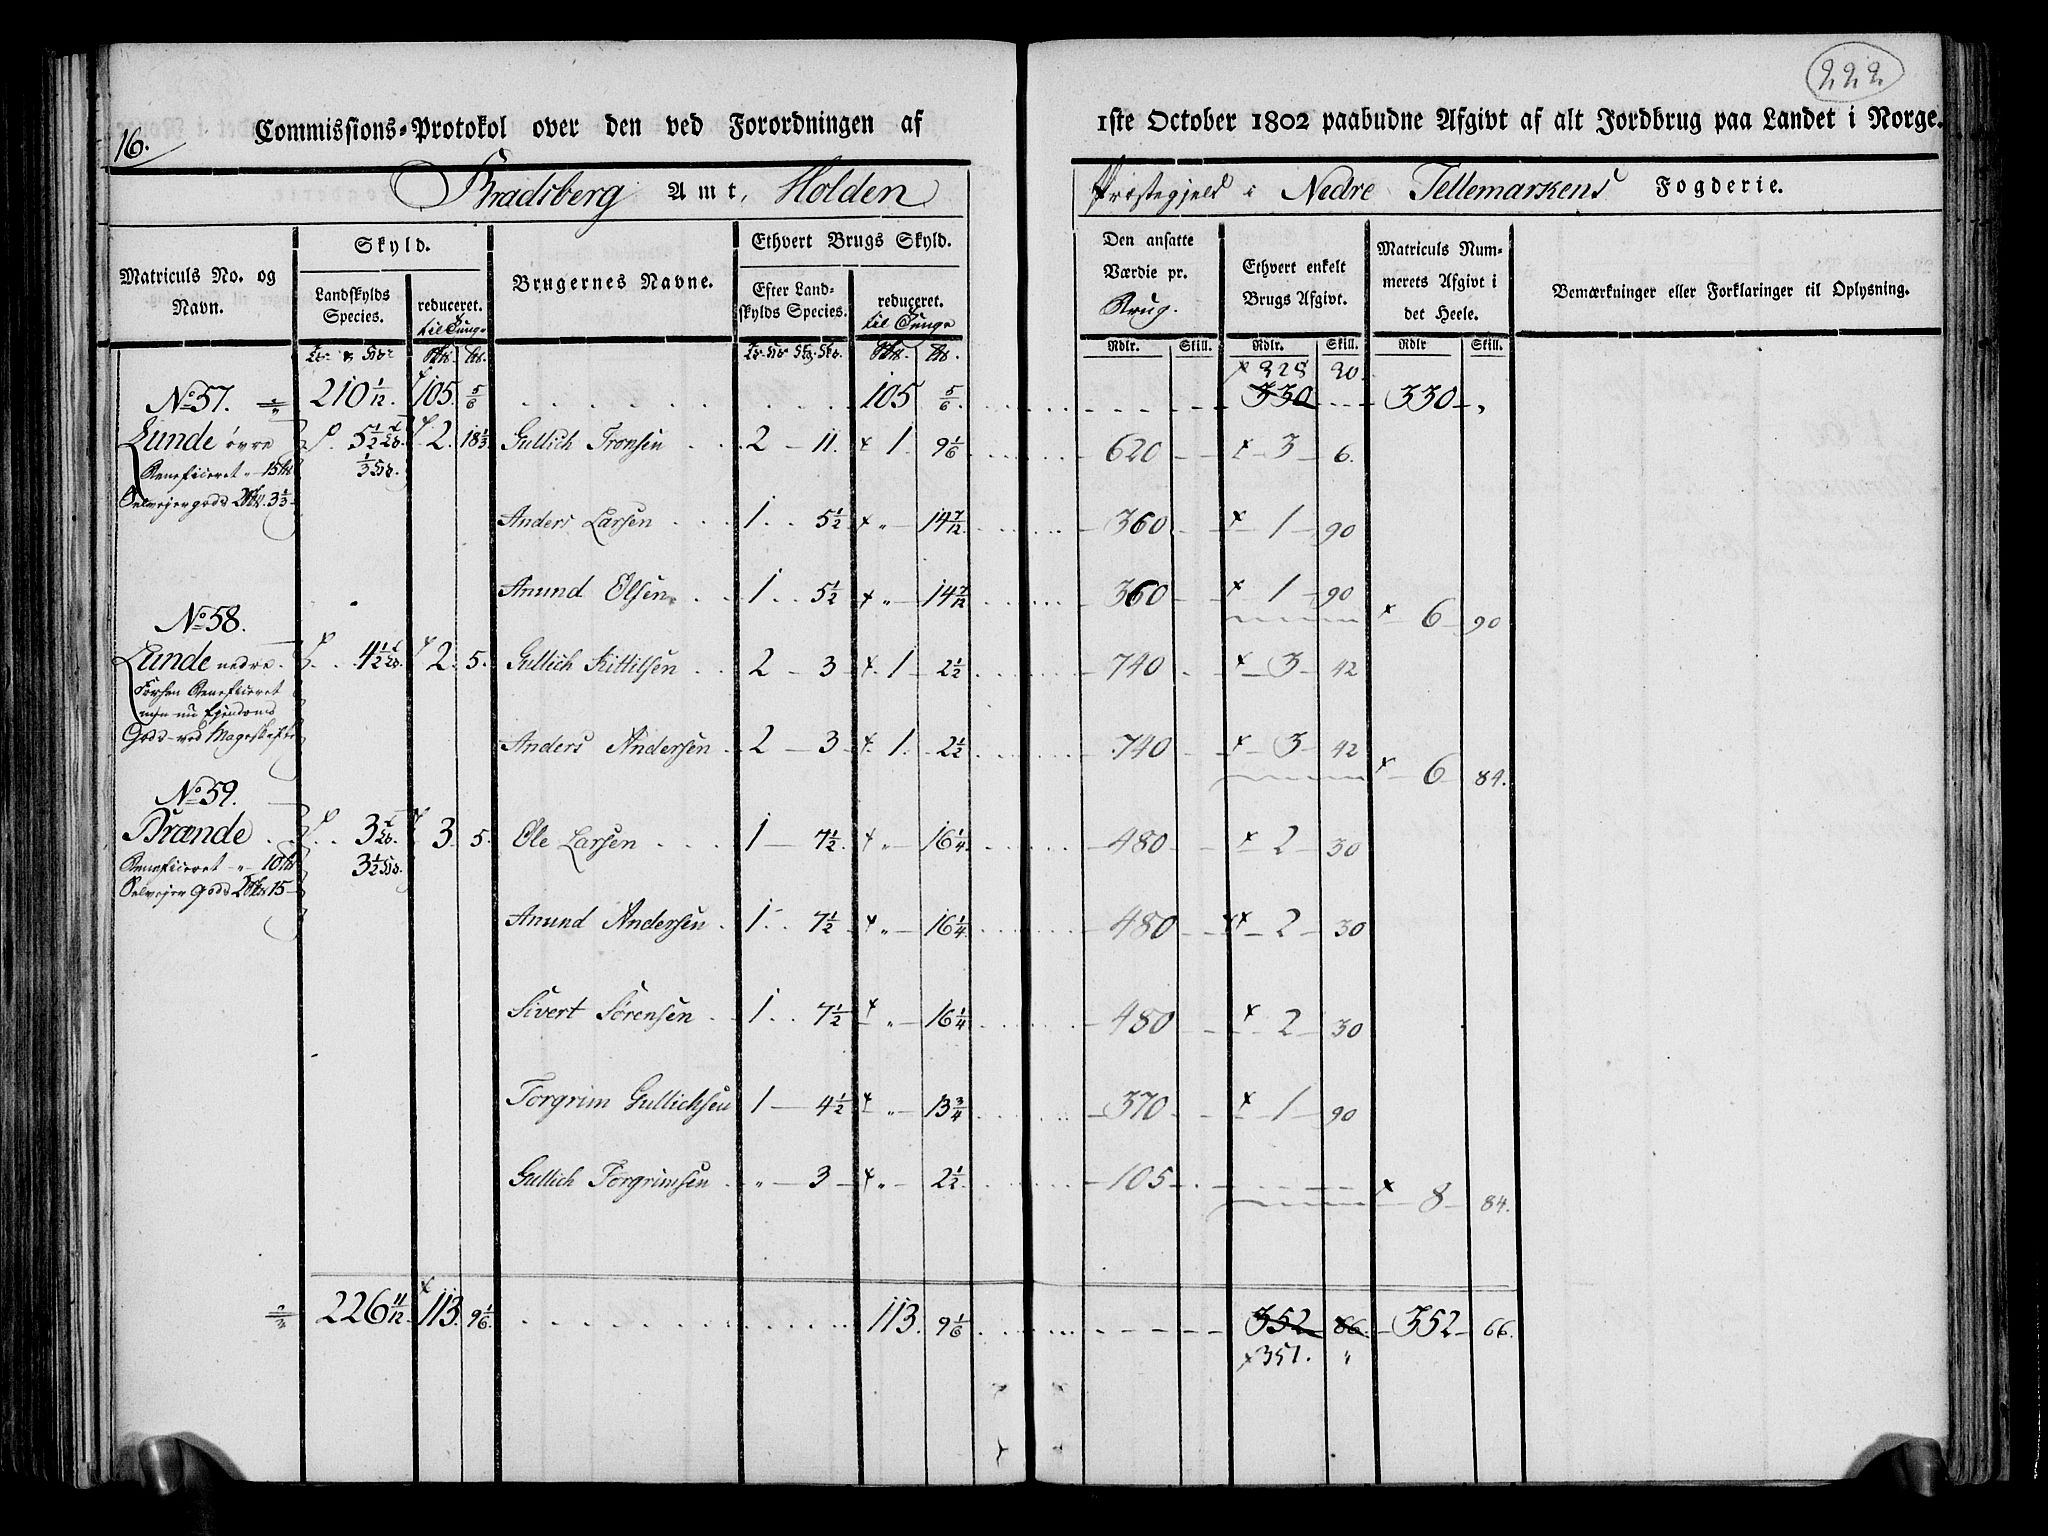 222
16.
Commissions-Protokol over den ved Forordningen af 1ste October 1802 paabudne Afgivt af alt Jordbrug paa Landet i Norge.
Bradsberg Amt, Holden Præstegjeld i Nedre Tellemarkens Fogderie.
Matriculs No. og Navn.
Skyld.
Landskylds Species.
reduceret. til Tunge
Brugernes Navne.
Ethvert Brugs Skyld.
Efter Landskylds Species.
reduceret. til Tunge
Den ansatte Værdie pr. Brug.
Ethvert enkelt Brugs Afgivt.
Matriculs Nummerets Afgivt i det Heele.
Bemærkninger eller Forklaringer til Oplysning.
Rdlr. Skill. Rdlr. Skill. Rdlr Skill.
328 20.
No 57. 210 1/12. 105. 5/6 105 5/6. 330 330
Lunde øvre 5 1/2 Lb. 2. 18 1/3 Gullich Tronsen 2 11. 1. 9 1/6 620 3 6.
Beneficeret 15 1/3 Sb.
Selveiergods 2 3 1/3
Anders Larsen 1 5 1/2 " 14 7/12 360 1 90
Amund Olsen 1 5 1/2 " 14 7/12 360 1 90
6 90
No 58.
Lunde nedre. 4 1/2 Lb. 2. 5. Gullich Kittilsen 2 3 1 2 1/2 740 3 42
Forhen Beneficeret
men nu Ejendoms
Gods ved Mageskifte
Anders Andersen 2 3 1. 2 1/2 740 3 42
6 84.
No 59.
Brænde 3 Lb. 3 5. Ole Larsen 1 7 1/2 " 16 1/4 480 2 30
Beneficeret " 10 3 1/2
Selveier Gods 2 15
Amund Andersen 1 7 1/2 " 16 1/4 480 2 30
Sivert Sørensen 1 7 1/2 " 16 1/4 480 2 30
Torgrim Gullichsen 1 4 1/2 " 13 3/4 370 1 90
Gullich Torgrimsen " 3 " 2 1/2 105
8 84.
226 11/12 113. 9 1/6. 113. 9 1/6 352 86. 352 66.
351. "